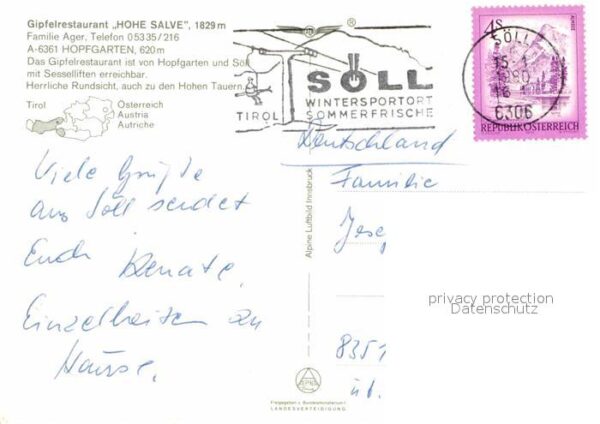 Gipfelrestaurant „HOHE SALVE", 1829 m
Familie Ager, Telefon 0 53 35 / 216
A-6361 HOPFGARTEN, 620 m
Das Gipfelrestaurant ist von Hopfgarten und Söll
mit Sesselliften erreichbar.
Herrliche Rundsicht, auch zu den Hohen Tauern.
Tirol
Österreich
Austria
Autriche
SÖLL
WINTERSPORTORT
TIROL SOMMERFRISCHE
SÖLL
1980
6306
4S
REPUBLIK ÖSTERREICH
Viele Grüße
aus Söll sendet
Euch Renate.
Einzelheiten zu
Hause.
Deutschland
Familie
Jose
8351
üb.
Alpine Luftbild Innsbruck
Freigegeben v. Bundesministerium f.
LANDESVERTEIDIGUNG
privacy protection
Datenschutz